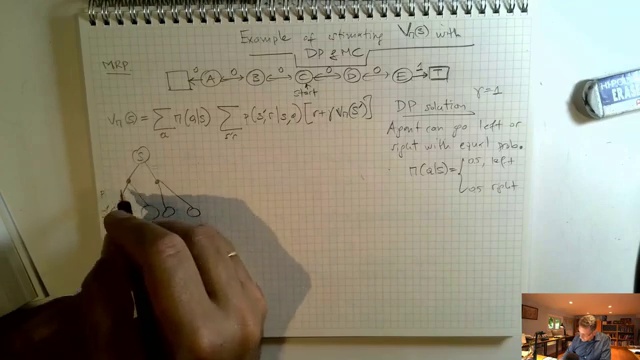 Example of estimating Vπ(s) with
DP & MC
MRP
0 A 0 B 0 C 0 D 0 E 1 T
start
Vπ(s) = Σ π(a|s) Σ p(s',r|s,a) [r+γVπ(s')]
a s'r
DP solution γ=1
Agent can go left or
right with equal prob.
π(a|s) = { 0.5, left
0.5 right
S
P
ERAS